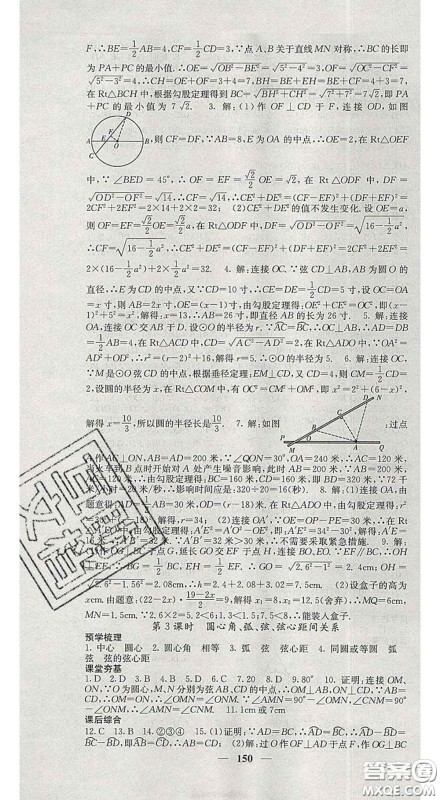 F,∴BE=1/2AB=4,CF=1/2CD=3,∵点A、B关于直线MN对称,∴BC的长即
为PA+PC的最小值.∴OE=√(OB²-BE²)=√(5²-4²)=3,OF=√(OC²-CF²)
=√(5²-3²)=4.∴CH=OE+OF=3+4=7,BH=BE+EH=BE+CF=4+3=7,
在Rt△BCH中,根据勾股定理得到BC=√(BH²+CH²)=√(7²+7²)=7√2,即PA
+PC的最小值为7√2. 3.解:(1)作OF⊥CD于F,连接OD,如图
则CF=DF,∵AB=8,E为OA的中点,∴OE=2,在Rt△OEF
中,∵∠BED=45°,∴OF=EF=√2/2OE=√2,在Rt△ODF中,DF=
√(OD²-OF²)=√14,∴CF=√14,∴CE²+DE²=(CF-EF)²+(DF+EF)²=
2CF²+2EF²=2×14+2×2=32; (2)CE²+DE²的值不发生变化.设OE=a,
则OF=EF=√2/2OE=√2/2a,在Rt△ODF中,DF=√(OD²-OF²)=√(16-1/2a²),
∴CF=√(16-1/2a²),∴CE²+DE²=(CF-EF)²+(DF+EF)²=2CF²+2EF²=
2×(16-1/2a²)+2×1/2a²=32. 4.解:连接OC,∵弦CD⊥AB,AB为圆O的
直径,∴E为CD的中点,又∵CD=10寸,∴CE=DE=1/2CD=5寸,设OC=OA
=x寸,则AB=2x寸,OE=(x-1)寸,由勾股定理得:OE²+CE²=OC²,即(x-
1)²+5²=x²,解得:x=13,∴AB=26寸,即直径AB的长为26寸. 5.解:连接
OA,连接OC交AB于D.设⊙O的半径为r.∵AC=BC,∴OC⊥AB,∴AD=DC
=1/2AB=4,在Rt△ACD中,CD=√(AC²-AD²)=2,在Rt△OAD中,∵OA²=
AD²+OD²,∴r²=(r-2)²+16,解得r=5,∴⊙O的半径为5. 6.解:连接OC,
∵M是⊙O弦CD的中点,根据垂径定理,EM⊥CD,又CD=4则CM=1/2CD=
2,设圆的半径为x,在Rt△COM中,有OC²=CM²+OM²,即x²=2²+(6-x)²,
解得x=10/3,所以圆的半径长是10/3. 7.解:如图 ;过点
A作AC⊥ON,AB=200米,∵∠QON=30°,OA=240米,∴AC=120米,
当火车到B点时开始对A处产生噪音影响,此时AB=200米,∵AB=200米,
AC=120米,∴由勾股定理得:BC=160米,CD=160米,即BD=320米,∵72千
米/小时=20米/秒,∴影响时间应是:320÷20=16(秒). 8.解:(1)连接OA,由
题意得:AD=1/2AB=30米,OD=(r-18)米,在Rt△ADO中,由勾股定理得:r²
=30²+(r-18)²,解得,r=34; (2)连接OA′,∵OE=OP-PE=30米,∴在
Rt△A′EO中,由勾股定理得:A′E²=A′O²-OE²,即:A′E²=34²-30²,解得:
A′E=16米.∴A′B′=32米.∵A′B′=32>30,∴不需要采取紧急措施.
OG⊥BC于点G,延长GO交EF于点H,连接BO、EO.∵EF∥BC,∴OH
⊥EF,∴BG=1/2BC,EH=1/2EF,∴GO=√(2.6²-1²)=2.4cm,OH=
√(2.6²-1.56²)=2.08cm,2.5cm (2)设盒子的高为
xcm.由题意:(22-2x)·(19-2x)/2=9,解得x₁=8,x₂=12.5(舍弃),∴MQ=6cm,
MN=1.5cm,∵2.6×2=5.2<6;1.3<1.5,∴能装入盒子.
第3课时 圆心角、弧、弦、弦心距间关系
预学梳理
1.中心 圆心 2.圆心角 相等 3.弧 弦 弦心距 4.同圆或等圆 弧
弦 弦的弦心距
课堂夯基
1.D 2.D 3.B 4.D 5.C 6.C 7.20 8.D 9.80° 10.证明:连接OM、
ON、∵O为圆心,M、N分别为弦AB、CD的中点,∴OM⊥AB,ON⊥CD,∵AB=
CD,∴OM=ON,∴∠OMN=∠ONM,∵∠AMN=90°-∠OMN,∠CNM=90°
-∠ONM,∴∠AMN=∠CNM. 11.1cm或7cm
课后综合
12.C 13.B 14.②③④ 15.(1)证明:∵AD=BC,∴AD=BC,∴AD-BD=
BC-BD,即AB=CD,∴AB=CD; (2)解:过O作OF⊥AD于点F,作OG⊥BC
150
答案圈
MXQE.COM